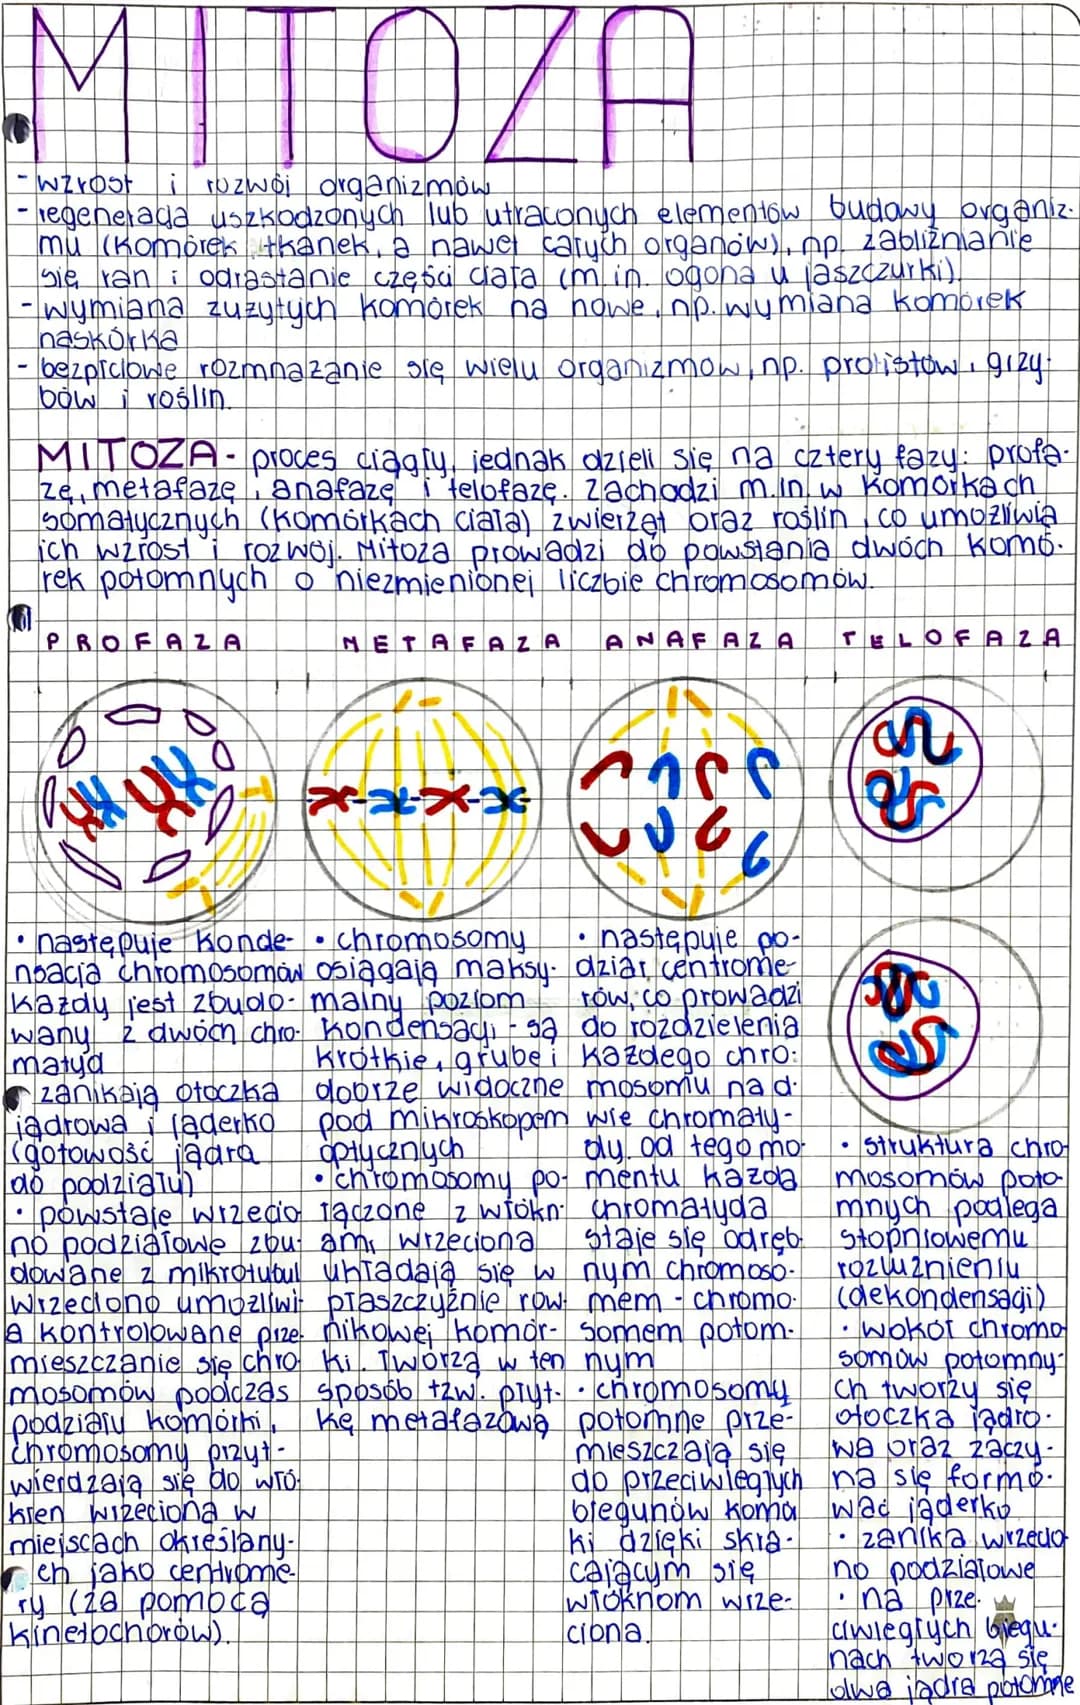 MITOZA
- wzrost i rozwój organizmów
- regeneracja uszkodzonych lub utraconych elementów budowy organiz-
mu (komórek, tkanek, a nawet całych organów), np. zabliźnianie
się ran i odrastanie części ciała (m.in. ogona u jaszczurki).
- wymiana zużytych komórek na nowe, np. wymiana komórek
naskórka
- bezpłciowe rozmnażanie się wielu organizmow, np. protistów, grzy-
bów i roślin.
MITOZA - proces ciągły, jednak dzieli się na cztery fazy: profa-
zę, metafazę, anafazę i telofazę. Zachodzi m.in. w komórkach
somatycznych (komórkach ciała) zwierząt oraz roślin, co umożliwia
ich wzrost i rozwój. Mitoza prowadzi do powstania dwóch komó-
rek potomnych o niezmienionej liczbie chromosomów.
PROFAZA
• następuje konde-
nsacja chromosomów
każdy jest zbudo-
wany z dwóch chro-
matyd
• zanikają otoczka
jądrowa i jąderko
(gotowość jądra
do podziału)
• powstaje wrzecio
no podziałowe zbu-
dowane z mikrotubul
wrzeciono umożliwi-
a kontrolowane prze-
mieszczanie się chro
mosomów podczas
podziału komórki,
chromosomy przyt-
wierdzają się do włó-
kien wrzeciona w
miejscach określany-
ch jako centrome-
ry (za pomocą
kinetochorów).
METAFAZA
• chromosomy
osiągają maksy-
malny poziom
kondensacji - są
krótkie, grube i
dobrze widoczne
pod mikroskopem
optycznych
• chromosomy po-
łączone z włókn-
ami wrzeciona
układają się w
płaszczyźnie rów-
nikowej komór-
ki. Tworzą w ten
sposób tzw. płyt-
kę metafazową
ANAFAZA
• następuje po-
dział centrome-
rów, co prowadzi
do rozdzielenia
każdego chro-
mosomu na d-
wie chromaty-
dy. od tego mo-
mentu każda
chromatyda
staje się odręb-
nym chromoso-
mem - chromo-
somem potom-
nym
• chromosomy
potomne prze-
mieszczają się
do przeciwległych
biegunów komó
ki dzięki skra-
cającym się
włóknom wrze-
ciona.
TELOFAZA
• struktura chro-
mosomów poto-
mnych podlega
stopniowemu
rozluźnieniu
(dekondensacji)
• wokół chromo
somów potomny-
ch tworzy się
otoczka jądro-
wa oraz zaczy-
na się formo-
wać jąderko
• zanika wrzecio
no podziałowe
• na prze-
ciwległych biegu-
nach tworzą się
dwa jądra potomne